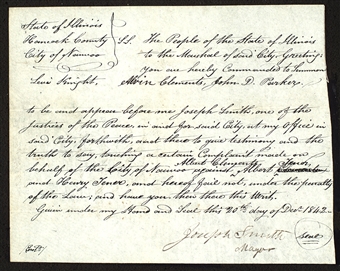 State of Illinois
Hancock County
City of Nauvoo
S.S. The People of the State of Illinois
to the Marshal of said City, Greeting:
you are hereby Commanded to Summon
Levi Knight, Alvin Clements, John D. Parker,
to be and appear before me Joseph Smith, one of the
Justices of the Peace, in and for said City, at my Office in
said City, forthwith, and there to give testimony and the
truth to say, touching a certain Complaint made on
behalf of the City of Nauvoo against Albert
and Henry Tenor, and hereof fail not, under the penalty
of the Law; and have you then there this Writ.
Given under my Hand and Seal this 20th day of Decr 1842
Joseph Smith seal
Mayor